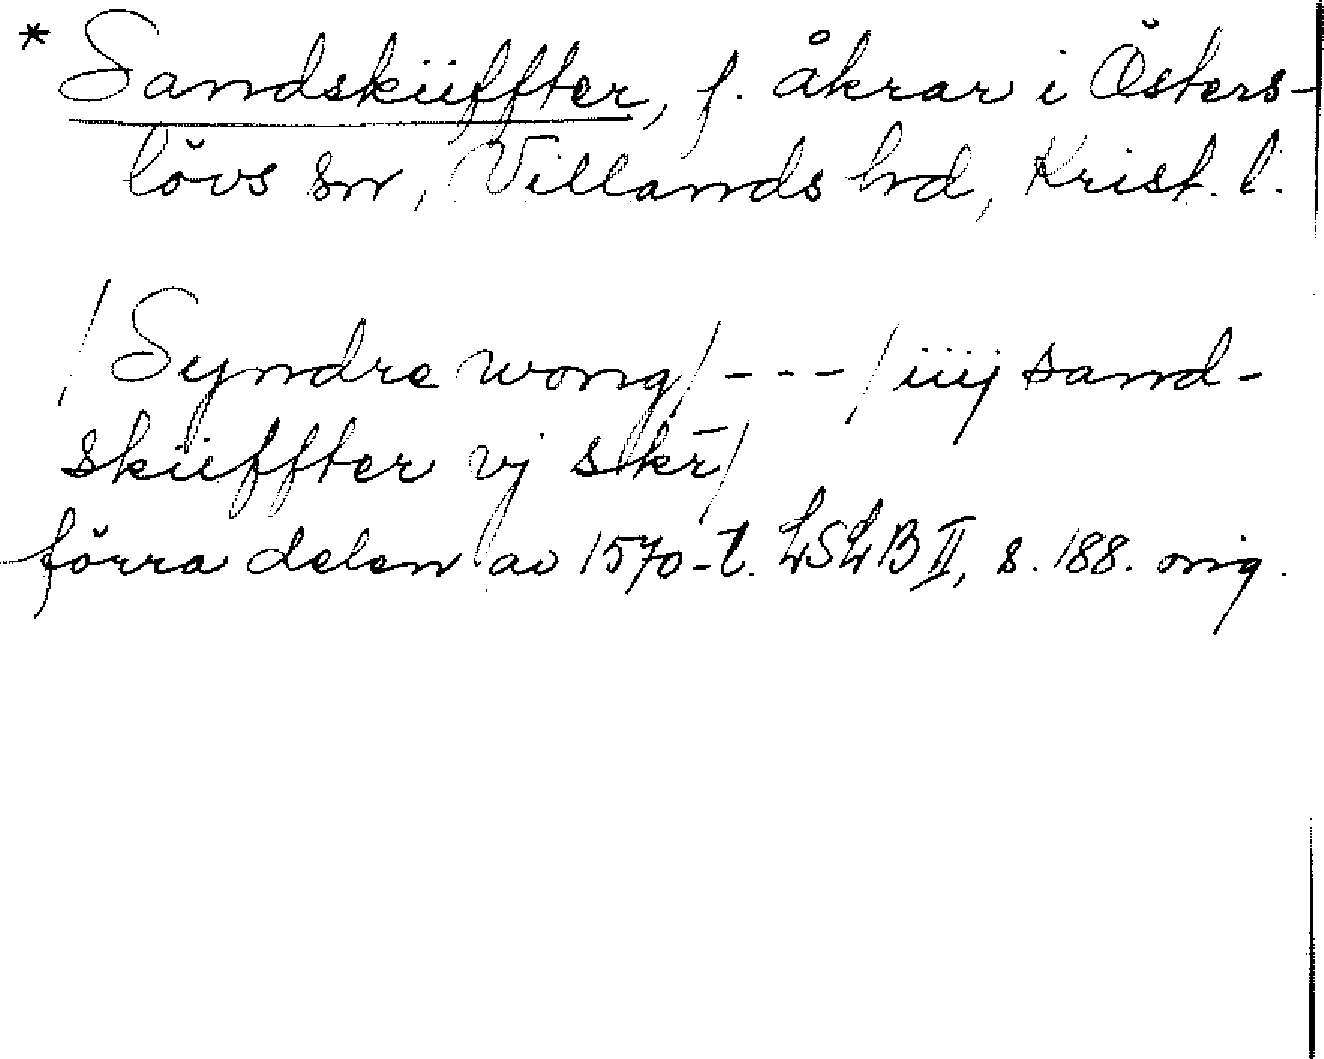 * Sandskiiffter, f. åkrar i Östers-
lövs sn, Villands hd, Krist. l.
/Syndre wong/ - - - /iiij sand-
skiiffter vj skr̄/
förra delen av 1570-t. LSLB II, s. 188. orig.